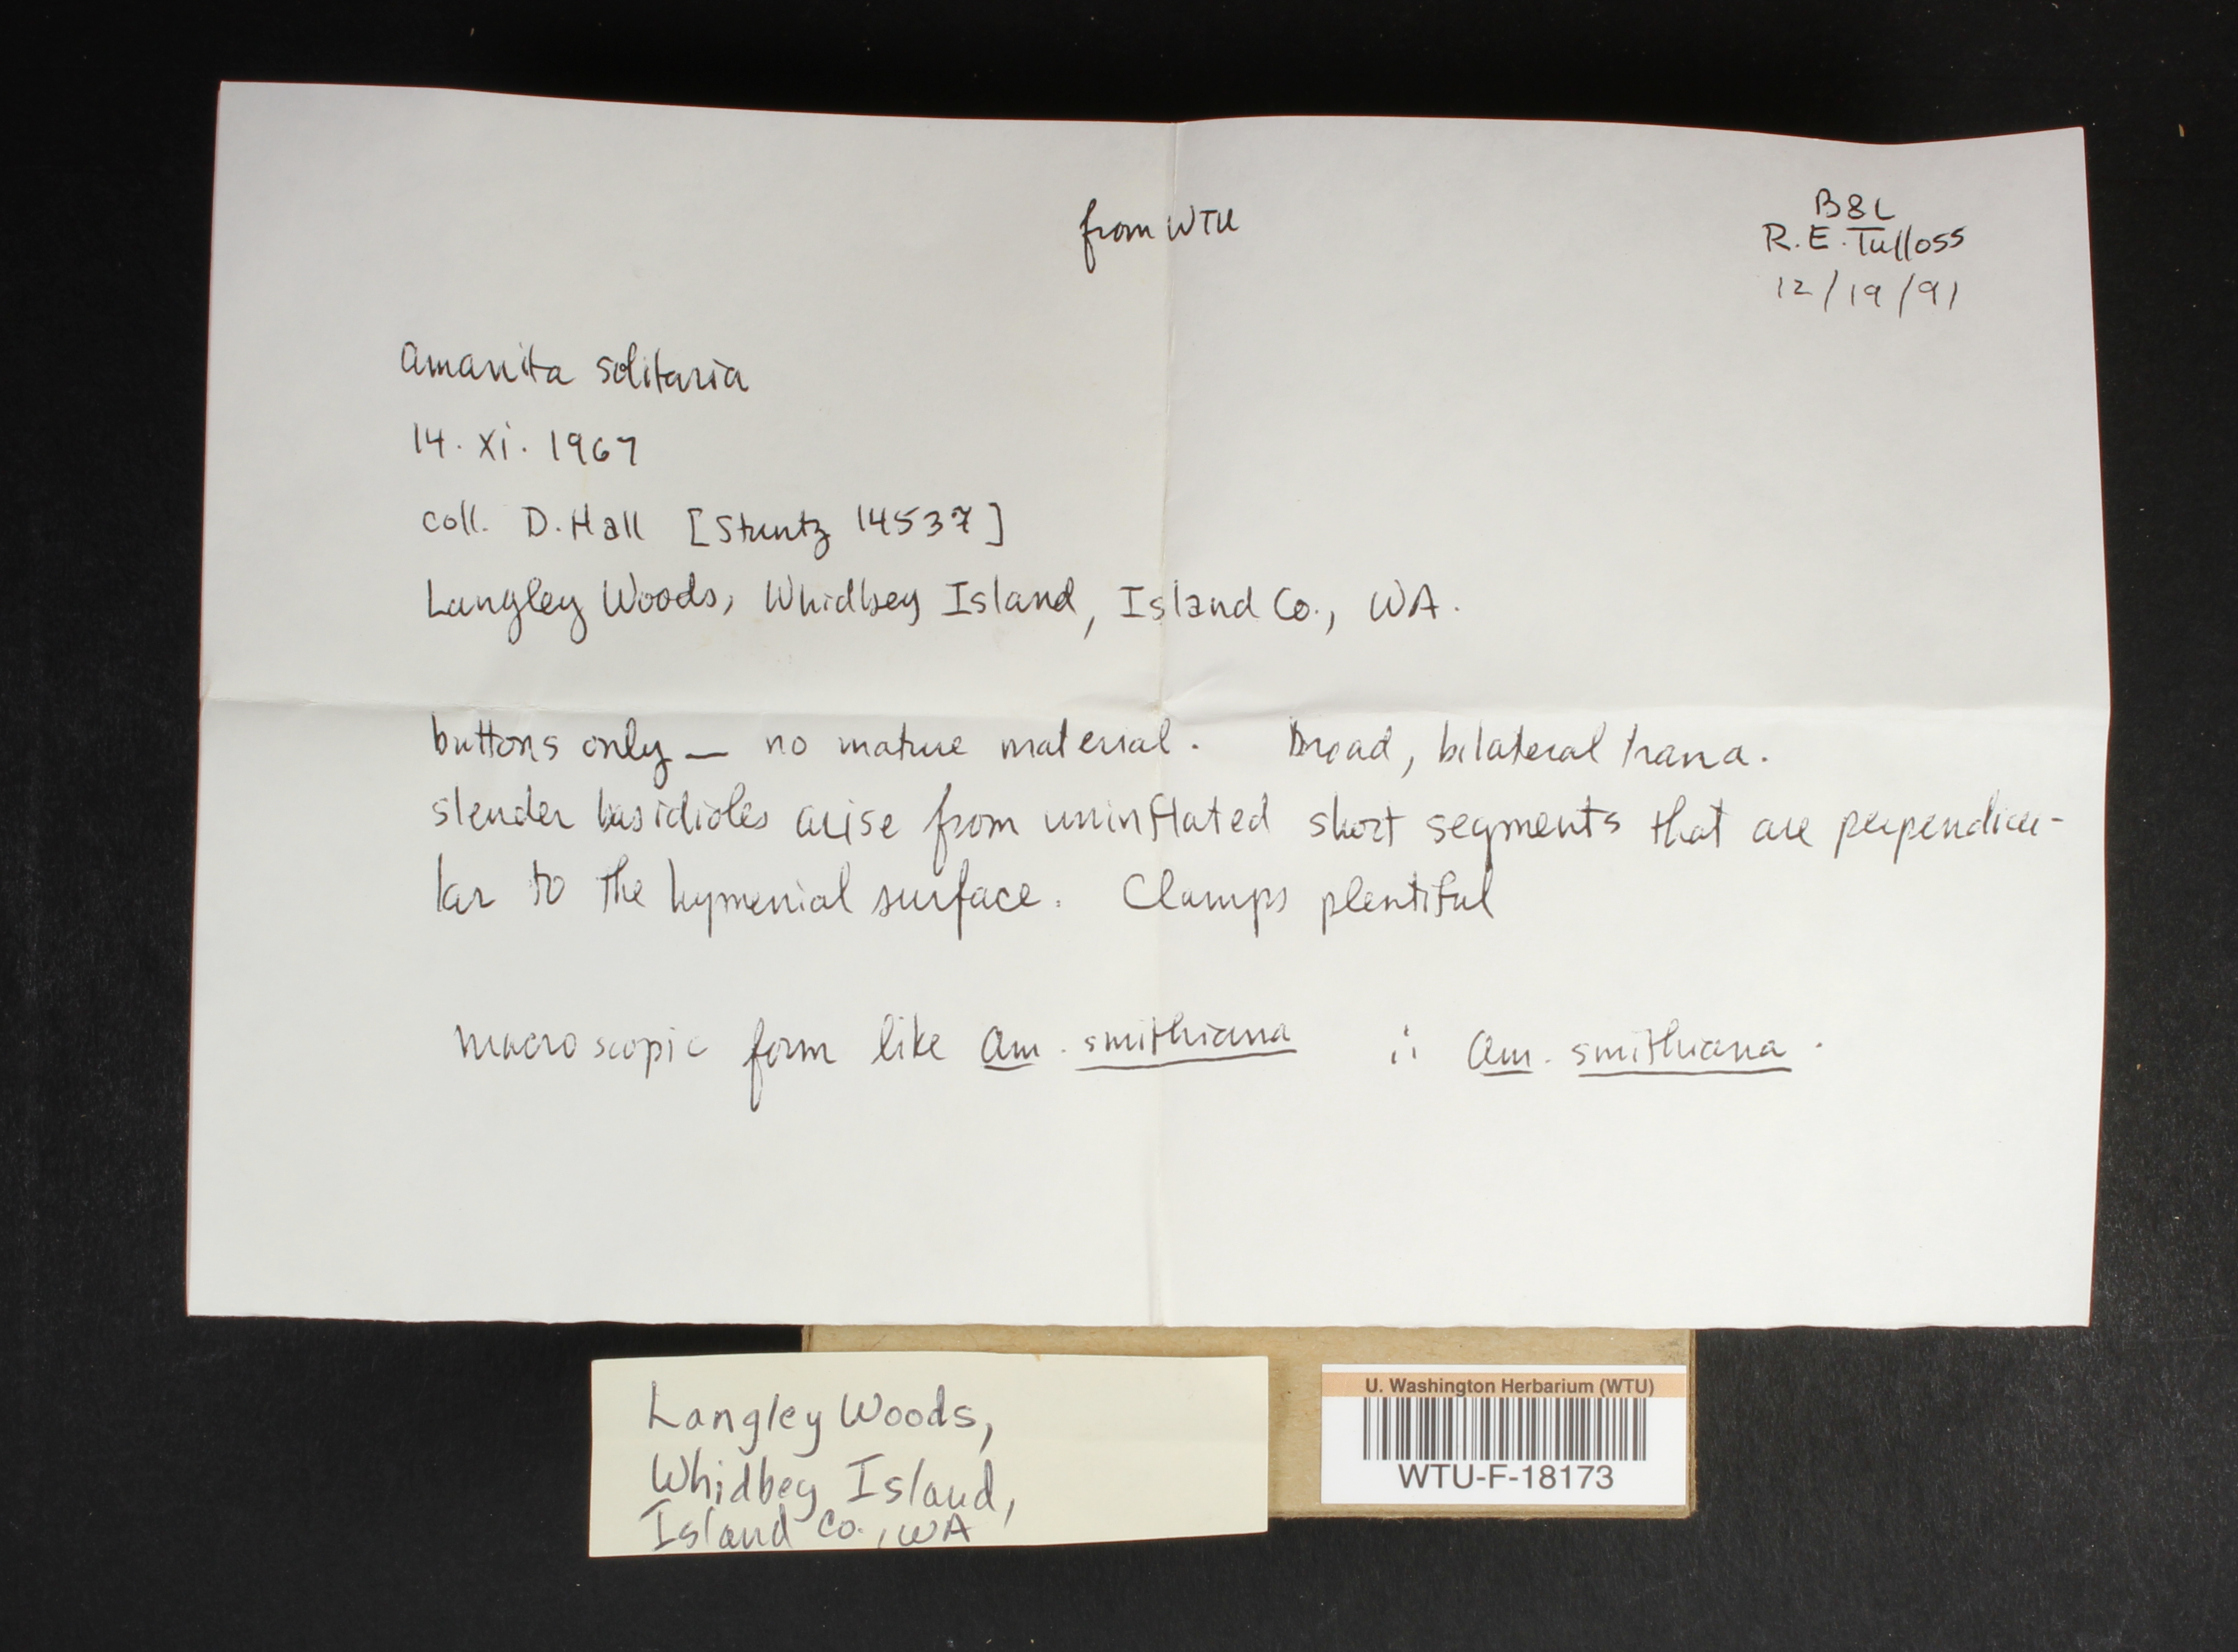 from WTU
B&L
R.E. Tulloss
12/19/91
Amanita solitaria
14. xi. 1967
coll. D. Hall [Stuntz 14537]
Langley Woods, Whidbey Island, Island Co., WA.
buttons only — no mature material. Broad, bilateral trama.
slender basidioles arise from uninflated short segments that are perpendicu-
lar to the hymenial surface. Clamps plentiful
macroscopic form like Am. smithiana ∴ Am. smithiana.
Langley Woods,
Whidbey Island,
Island Co., WA
U. Washington Herbarium (WTU)
WTU-F-18173